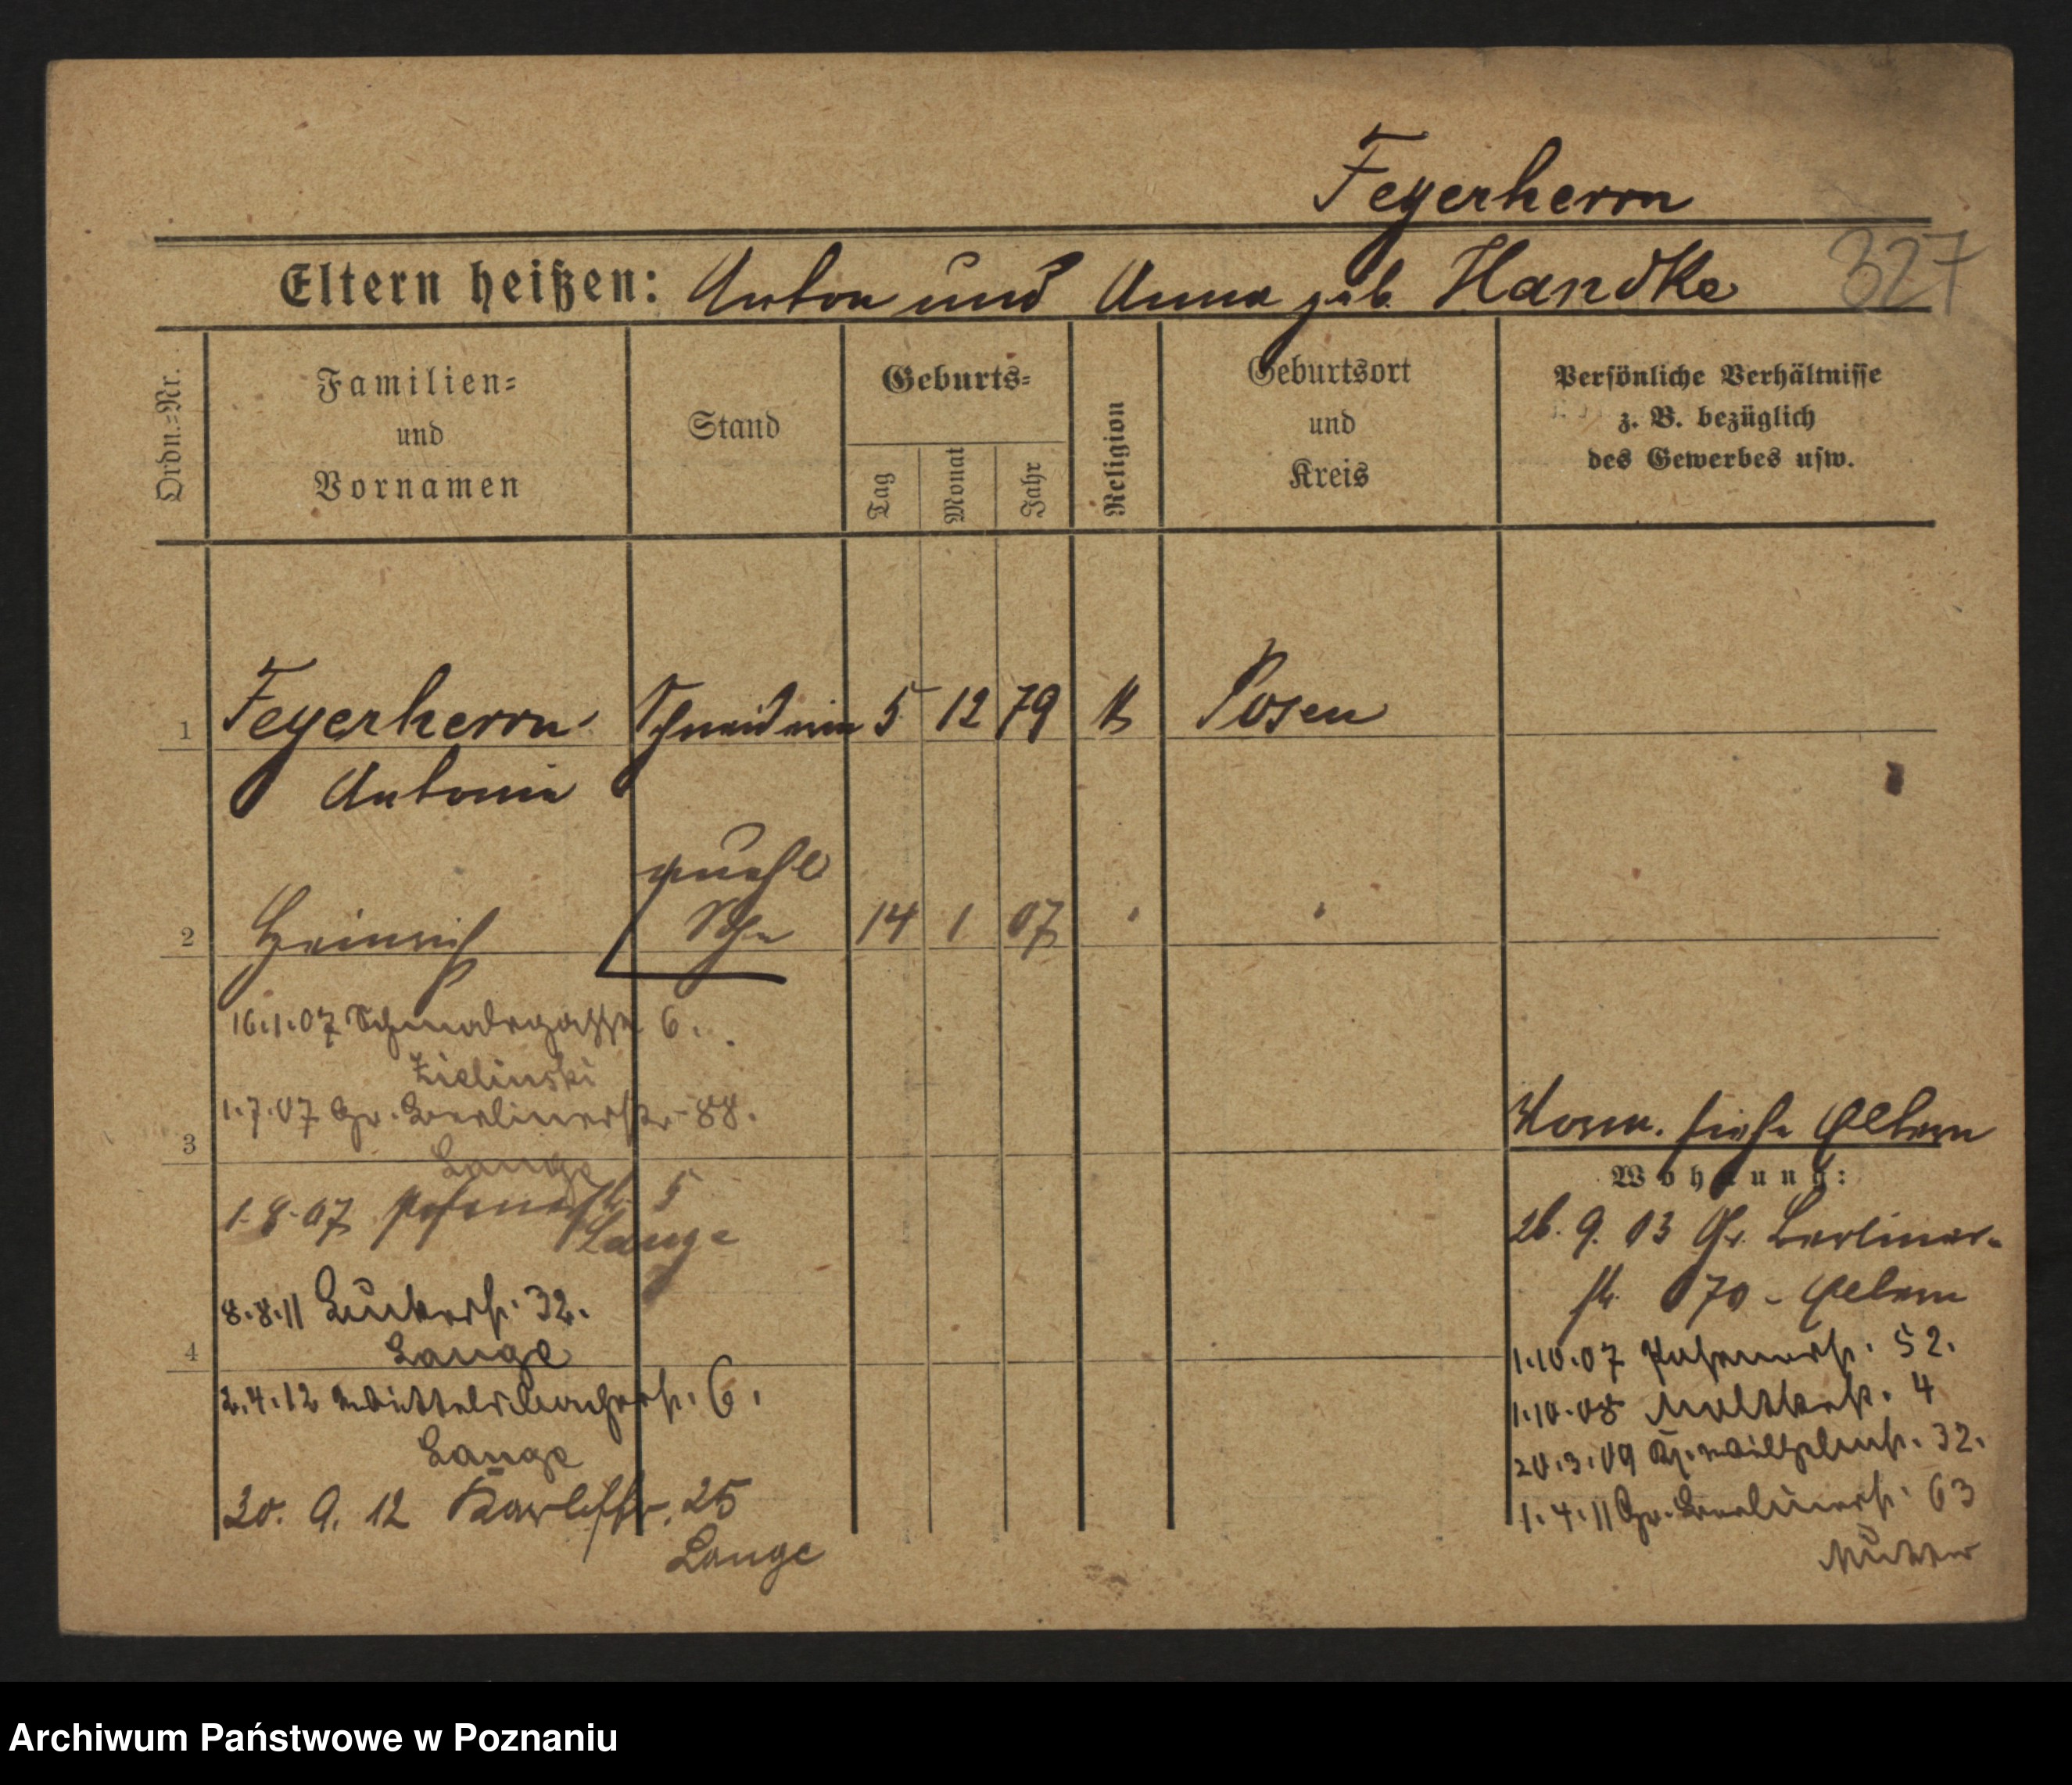 Feyerherm
Eltern heißen: Anton und Anna geb. Handke
327
Ordn.=Nr.
Familien=
und
Vornamen
Stand
Geburts=
Tag
Monat
Jahr
Religion
Geburtsort
und
Kreis
Persönliche Verhältnisse
z. B. bezüglich
des Gewerbes usw.
1 Feyerherm Schneiderin 5 12 79 K Posen
Antonie
unehl
2 Heinrich Sohn 14 1 07 " "
16.1.07 6.
Zielinski
1.7.07 Gr. Berlinerstr. 88.
3 Lange
1.8.07 Posenerstr 5
Lange
8.8.11 32.
4 Lange
2.4.12 Wittelsbacherstr. 6.
Lange
30. 9. 12 Karlstr. 25
Lange
Vorm. siehe Eltern
Wohnung:
26. 9. 03 Gr. Berliner-
str. 70 - Eltern
1.10.07 Posenerstr. 52.
1.10.08 Moltkestr. 4
20.3.09 Kg. Wilhelmstr. 32.
1.4.11 Gr. Berlinerstr. 63
Mutter
Archiwum Państwowe w Poznaniu